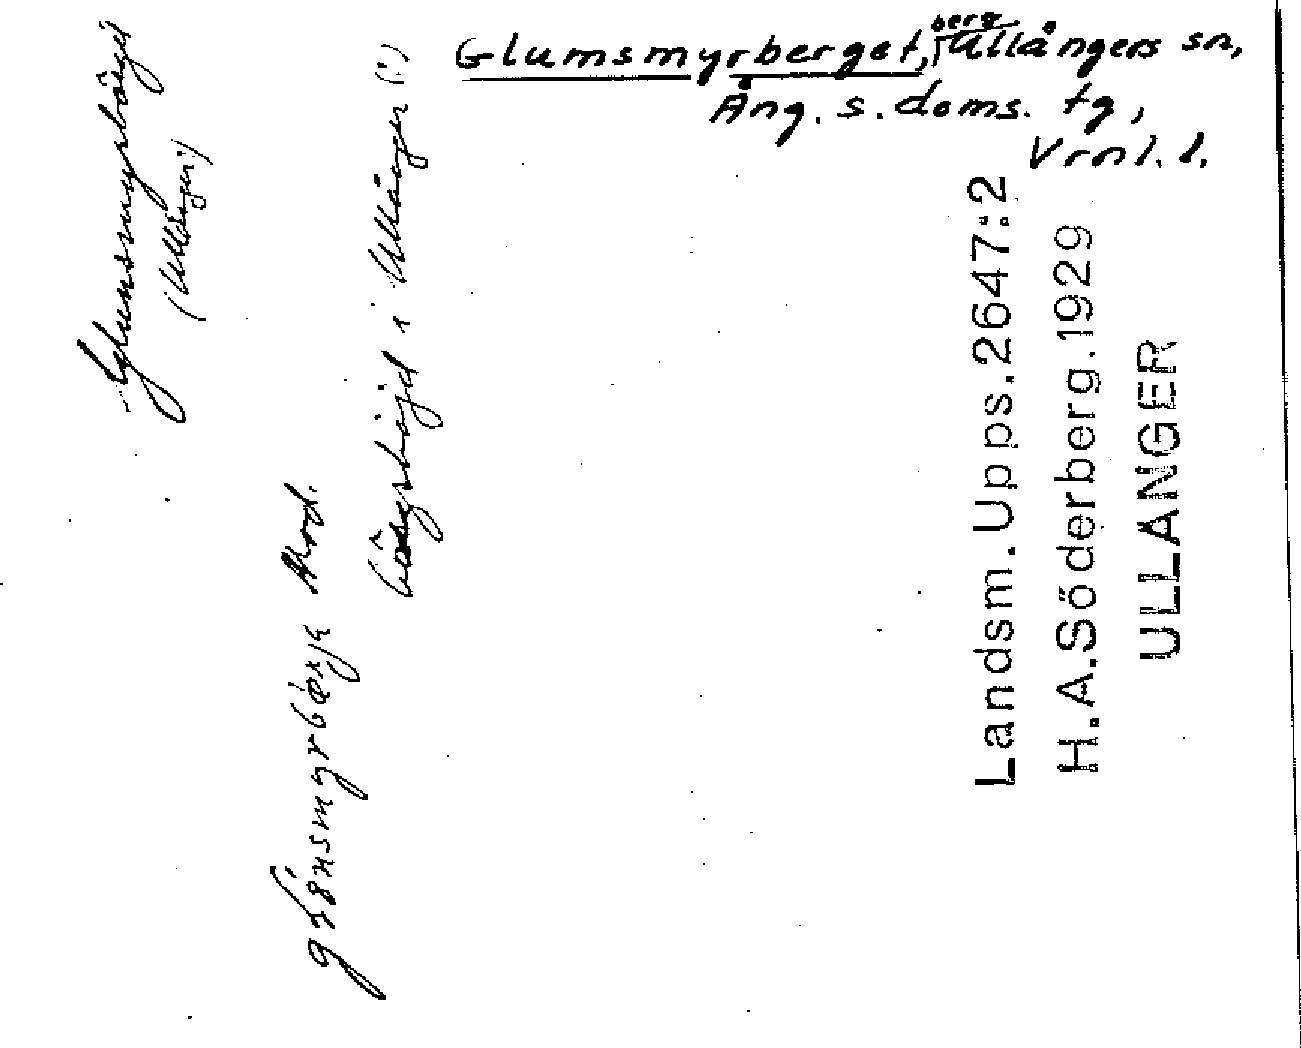 Glumsmyrberget, berg Ullångers sn,
Ång. s. doms. tg,
Vrnl. l.
Glumsmyrbärget
(Ullånger)
bärghöjd i Ullånger (:)
Landsm. Upps. 2647:2
H.A.Söderberg.1929
ULLÅNGER